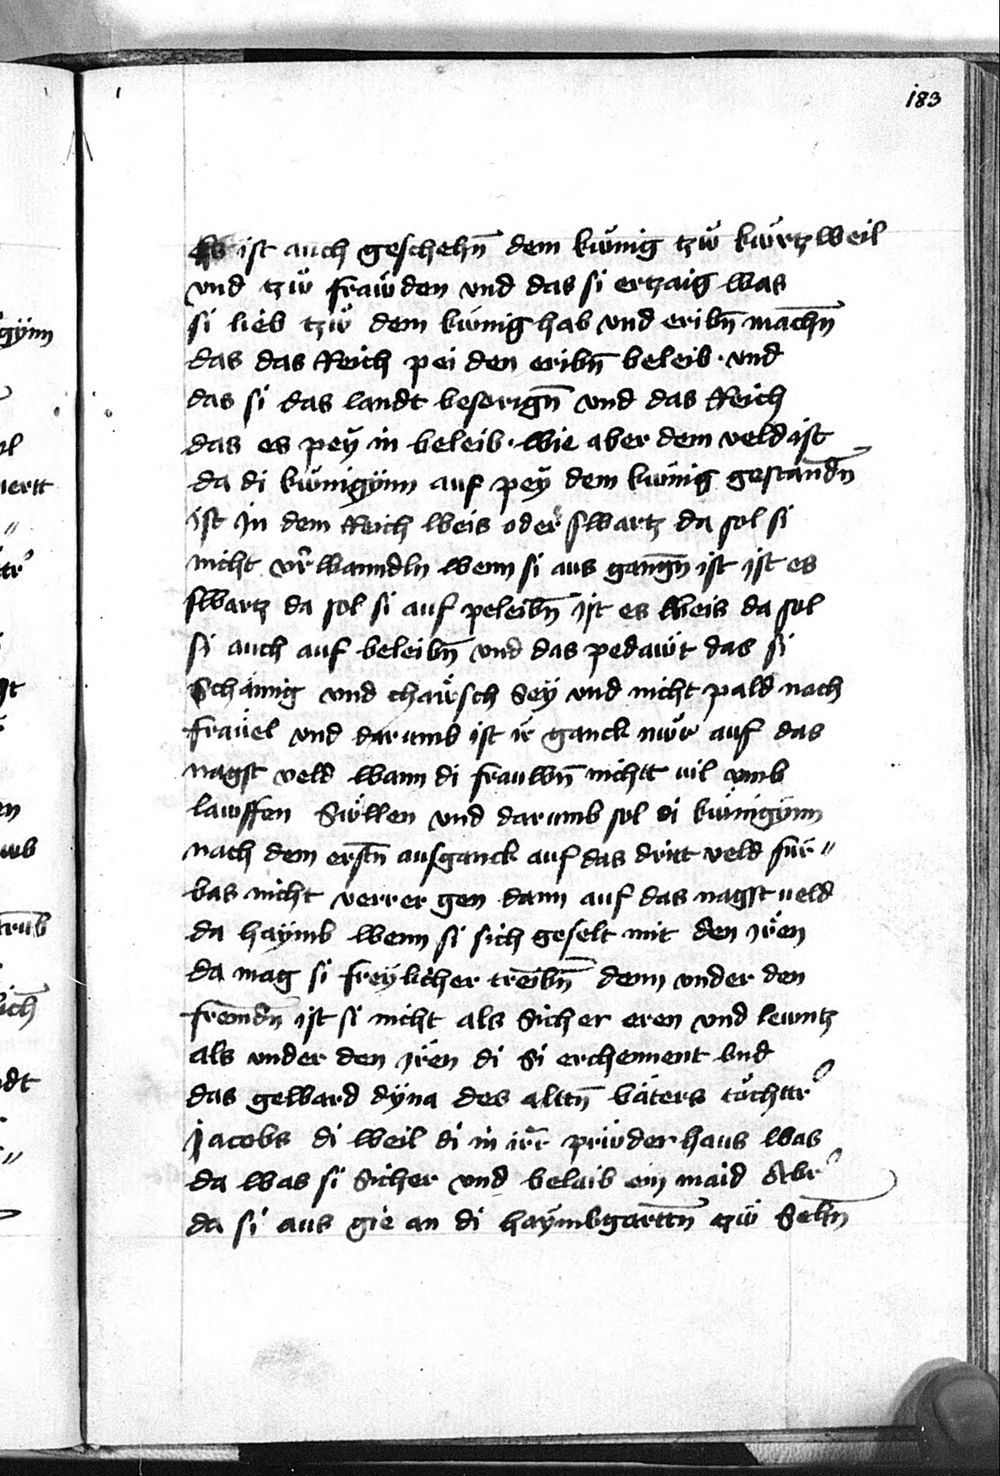 183
es ist auch geschehn̄ dem kwͤnig tzwͦ kwͤrtzweil
vnd tzwͦ frawͤden vnd das si ertzaig was
si lieb tzwͦ dem kwͤnig hab vnd eribn̄ machn̄
das das Reich pei den eribn̄ beleib · vnd
das si das landt besorign̄ vnd das Reich
das es peÿ in beleib · wie aber dem veld ist
da di kwͤnigÿnn auf peÿ dem kwͤnig gestandn̄
ist Jn dem Reich weis oder swartz da sol si
nicht vr̄wanndln wenn si aus gangn̄ ist ist es
swartz da sol si auf peleibn̄ ist es weis da sol
si auch auf beleibn̄ vnd das pedawͤt das si
Schämig vnd chawͤsch Seÿ vnd nicht pald nach
fräuel vnd darumb ist ir ganck nwͤr auf das
nagst veld wann di frauwn̄ nichtt uil vmb
lawffen Swͤllen vnd darumb sol di kwͤnigÿnn
nach dem erstn̄ ausganck auf das dritt veld für〃
bas nicht verrer gen dann auf das nagst veld
da haÿmb wenn si sich geselt mit den Jren
da mag si freÿlicher treibn̄ denn vnder den
fremdn̄ ist si nicht als Sicher eren vnd lewntz
als vnder den Jren di Si erchennent vnd
das geward dÿna des alttn̄ vaters töchttr̄
Jacobs di weil di in irr̄ prwͤder haus was
da was si Sicher vnd belaib ein maid Abr̄
da si aus gie an di haÿmbgarttn̄ tzwͦ Sehn̄